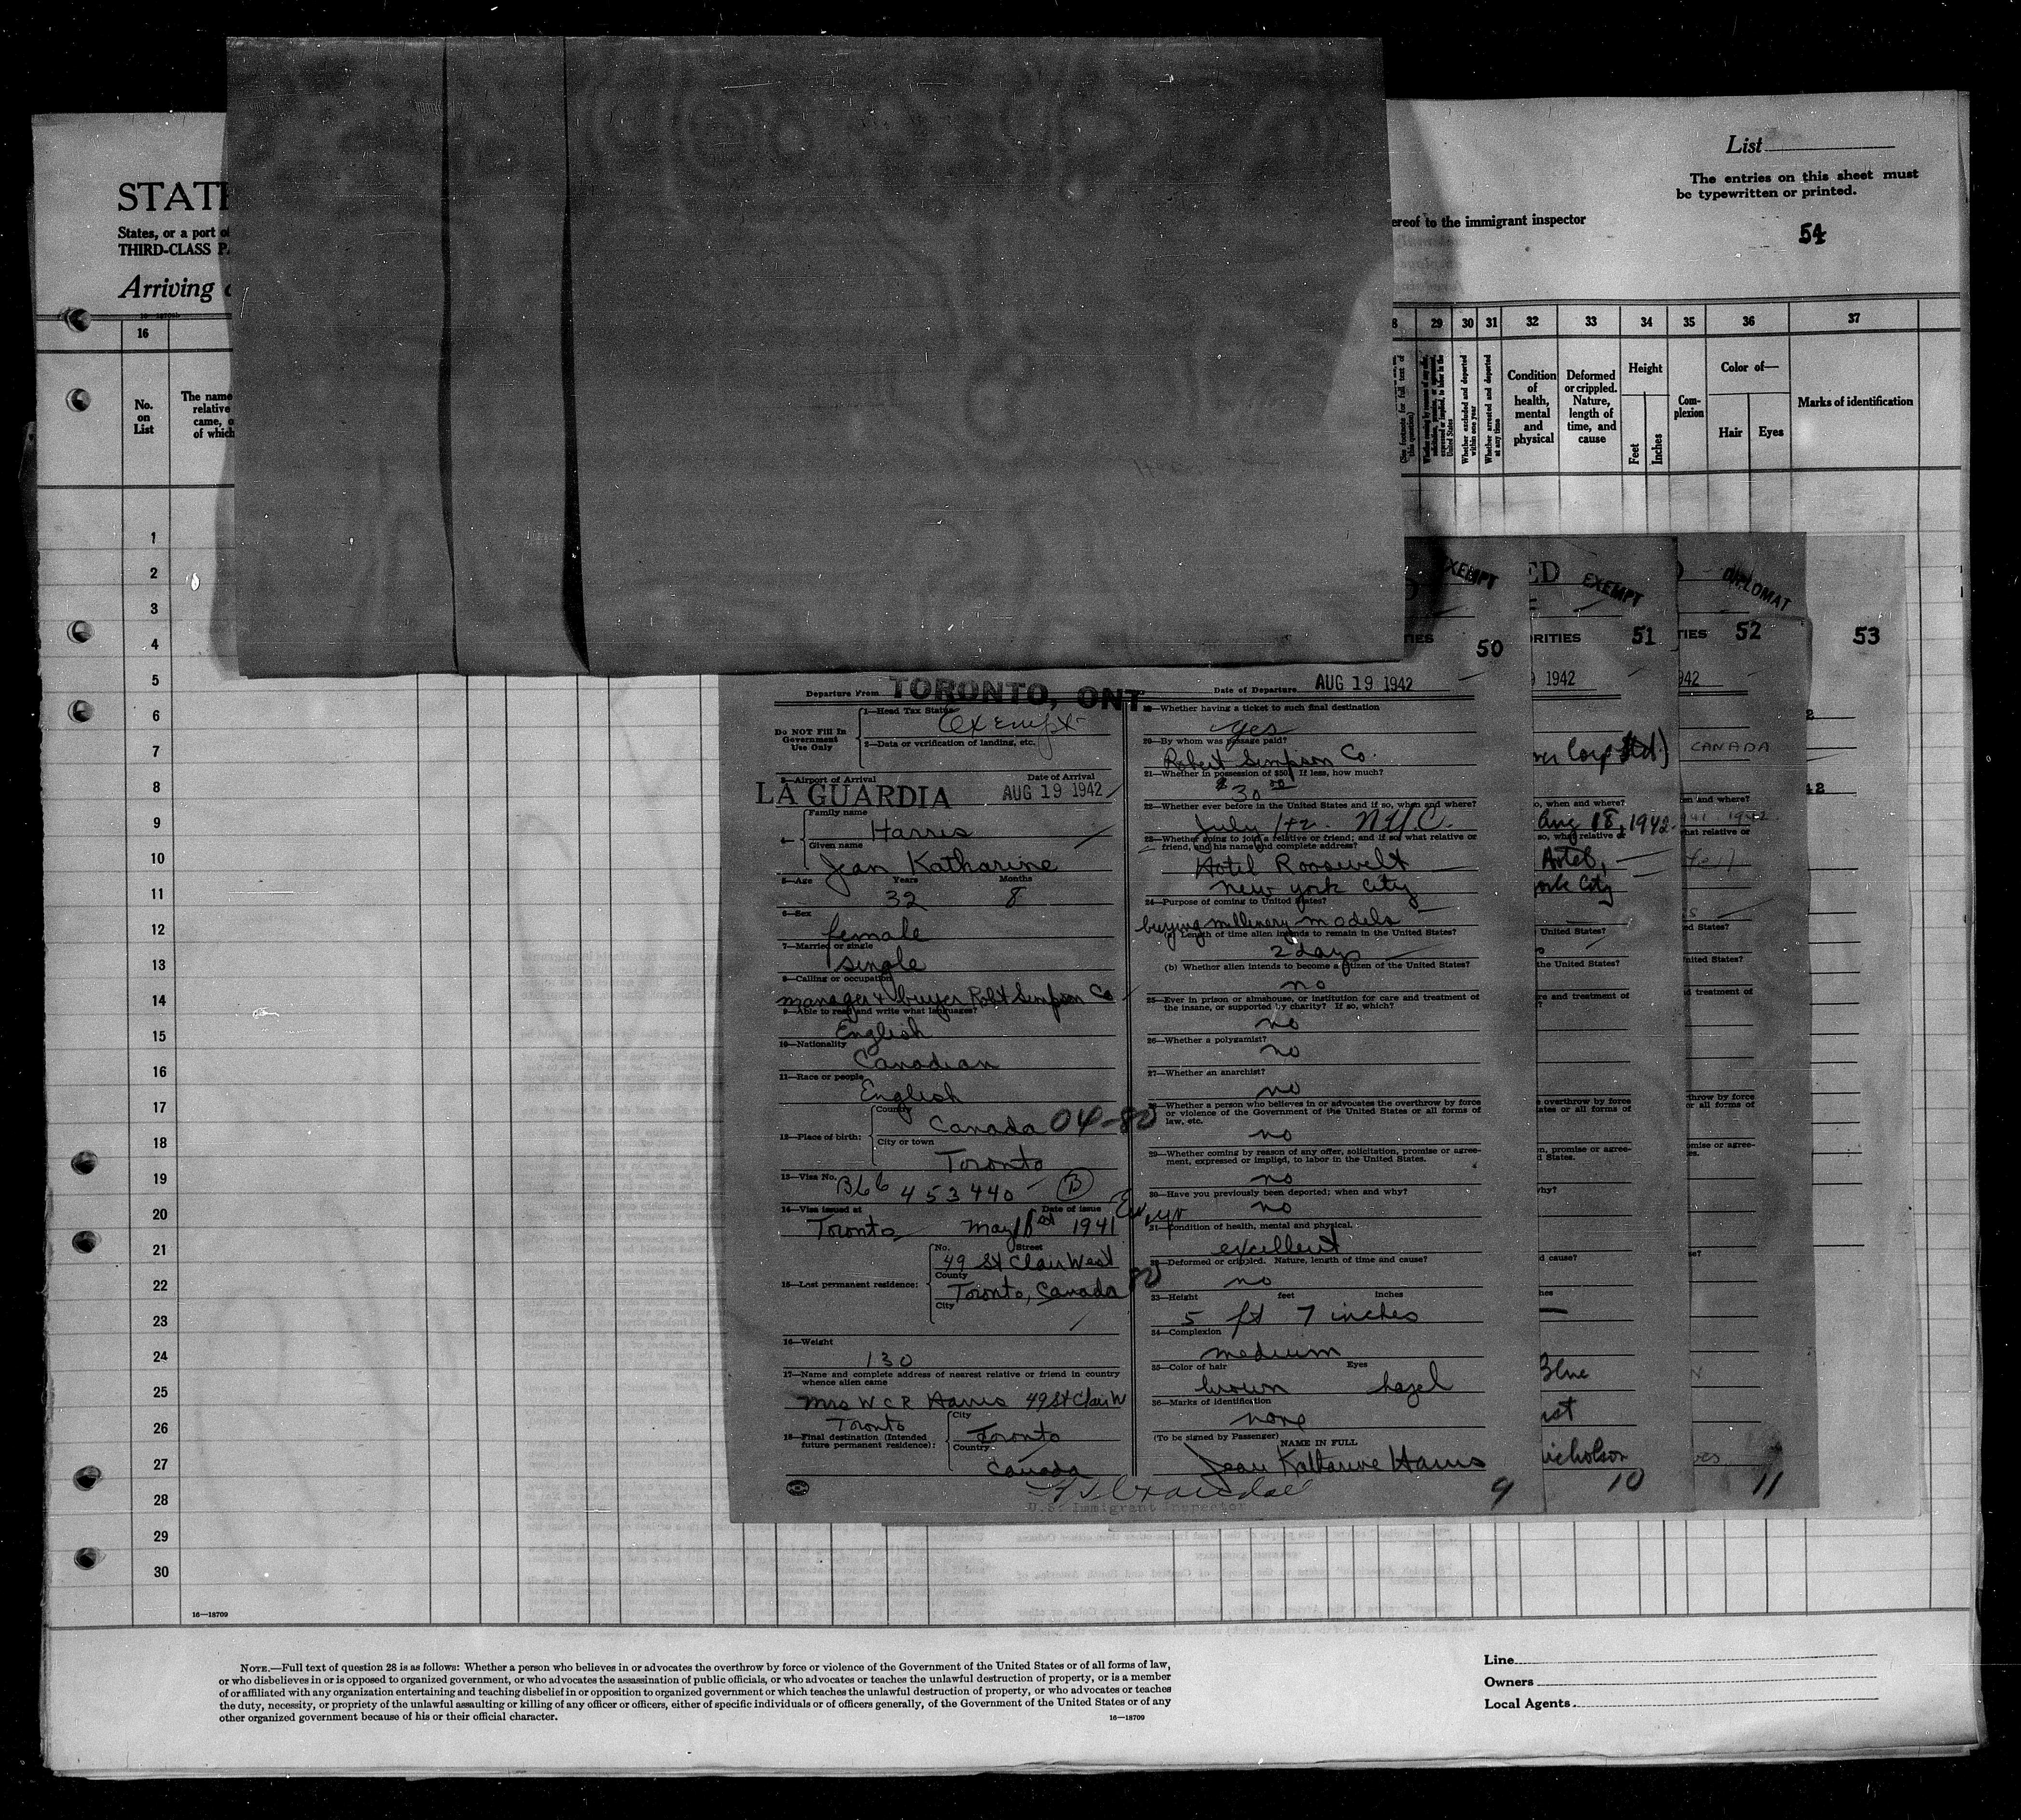 List
The entries on this sheet must
be typewritten or printed.
54
STATE
States, or a port of
THIRD-CLASS PA
Arriving
ereof to the immigrant inspector
16 29 30 31 32 33 34 35 36 37
No.
on
List
The name
relative
came, o
of which
Whether excluded and deported
within one year
Whether arrested and deported
at any time
Condition
of
health,
mental
and
physical
Deformed
or crippled.
Nature,
length of
time, and
cause
Height
Feet
Inches
Com-
plexion
Color of—
Hair Eyes
Marks of identification
1
2
3
4
5
6
7
8
9
10
11
12
13
14
15
16
17
18
19
20
21
22
23
24
25
26
27
28
29
30
16—18709
50
Departure From TORONTO, ONT. Date of Departure AUG 19 1942
Do NOT Fill In
Government
Use Only
1—Head Tax Status
Exempt
2—Data or verification of landing, etc.
3—Airport of Arrival Date of Arrival
LA GUARDIA AUG 19 1942
4—
Family name
Harris
Given name
Jean Katharine
5—Age Years Months
32 8
6—Sex
female
7—Married or single
single
8—Calling or occupation
manager & buyer Robt Simpson Co
9—Able to read and write what languages?
English
10—Nationality
Canadian
11—Race or people
English
12—Place of birth:
Country
Canada 04-80
City or town
Toronto
13—Visa No.
B66 453440 B
14—Visa issued at Date of issue
Toronto May 1941
15—Last permanent residence:
No. Street
49 St Clair West
County
Toronto, Canada 80
City
16—Weight
130
17—Name and complete address of nearest relative or friend in country
whence alien came
Mrs W C R Harris 49 St Clair W
Toronto
18—Final destination (Intended
future permanent residence):
City
Toronto
Country
Canada
19—Whether having a ticket to such final destination
yes
20—By whom was passage paid?
Robert Simpson Co.
21—Whether in possession of $50? If less, how much?
$30.00
22—Whether ever before in the United States and if so, when and where?
July 142. N.Y.C.
23—Whether going to join a relative or friend; and if so, what relative or
friend, and his name and complete address?
Hotel Roosevelt
New York City
24—Purpose of coming to United States?
buying millinery models
(a) Length of time alien intends to remain in the United States?
2 days
(b) Whether alien intends to become a citizen of the United States?
no
25—Ever in prison or almshouse, or institution for care and treatment of
the insane, or supported by charity? If so, which?
no
26—Whether a polygamist?
no
27—Whether an anarchist?
no
28—Whether a person who believes in or advocates the overthrow by force
or violence of the Government of the United States or all forms of
law, etc.
no
29—Whether coming by reason of any offer, solicitation, promise or agree-
ment, expressed or implied, to labor in the United States.
no
30—Have you previously been deported; when and why?
no
31—Condition of health, mental and physical.
excellent
32—Deformed or crippled. Nature, length of time and cause?
no
33—Height feet inches
5 ft 7 inches
34—Complexion
medium
35—Color of hair Eyes
brown hazel
36—Marks of identification
none
(To be signed by Passenger) NAME IN FULL
Jean Katharine Harris
U.S. Immigrant Inspector
9
EXEMPT
ED
EXEMPT
RITIES 51
1942
ver Corp Ltd.)
o, when and where?
Aug 18, 1942
so, what relative or
Hotel,
ork City
United States?
the United States?
re and treatment of
e overthrow by force
ates or all forms of
n, promise or agree-
d States.
why?
d cause?
hes
Blue
Nicholson
10
DIPLOMAT
TIES 52
942
CANADA
en and where?
1942
hat relative or
ed States?
nited States?
d treatment of
hrow by force
or all forms of
omise or agree-
es.
11
53
NOTE.—Full text of question 28 is as follows: Whether a person who believes in or advocates the overthrow by force or violence of the Government of the United States or of all forms of law,
or who disbelieves in or is opposed to organized government, or who advocates the assassination of public officials, or who advocates or teaches the unlawful destruction of property, or is a member
of or affiliated with any organization entertaining and teaching disbelief in or opposition to organized government or which teaches the unlawful destruction of property, or who advocates or teaches
the duty, necessity, or propriety of the unlawful assaulting or killing of any officer or officers, either of specific individuals or of officers generally, of the Government of the United States or of any
other organized government because of his or their official character.
16—18709
Line
Owners
Local Agents